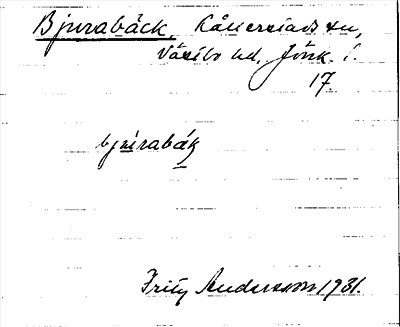 Bjurabäck, Kållerstads sn,
Västbo hd, Jönk. l.
17.
bjurabäk
Fritz Andersson 1931.